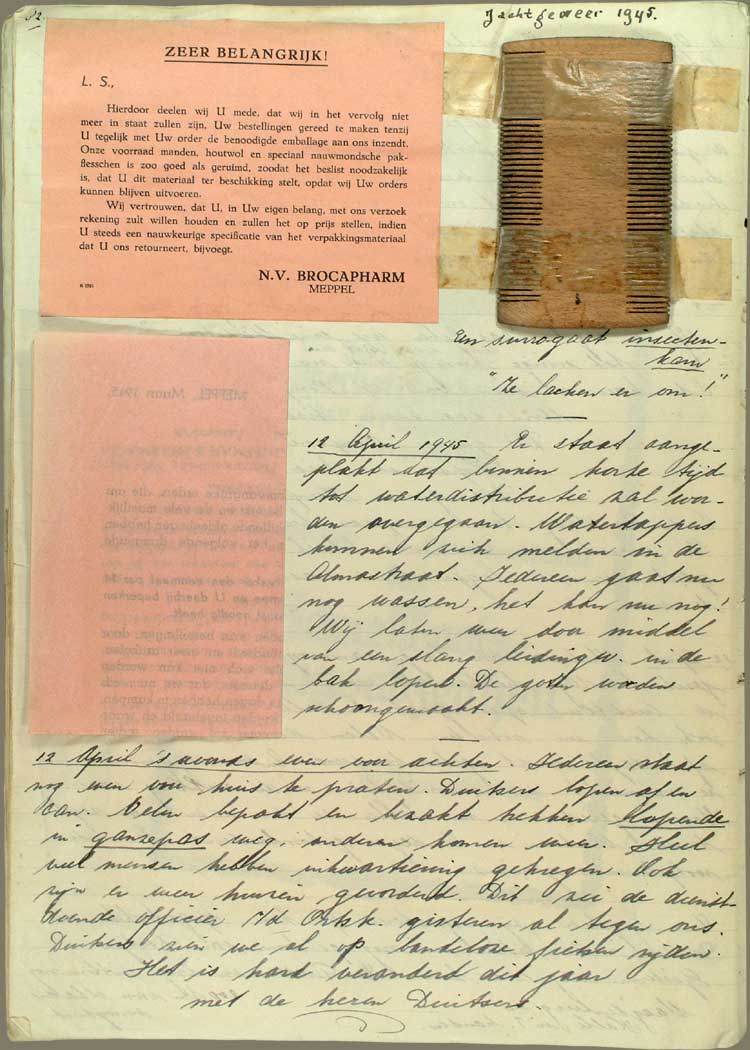 12.
Jachtgeweer 1945.
ZEER BELANGRIJK!
L. S.,
Hierdoor deelen wij U mede, dat wij in het vervolg niet
meer in staat zullen zijn, Uw bestellingen gereed te maken tenzij
U tegelijk met Uw order de benoodigde emballage aan ons inzendt.
Onze voorraad manden, houtwol en speciaal nauwmondsche pak-
flesschen is zoo goed als geruimd, zoodat het beslist noodzakelijk
is, dat U dit materiaal ter beschikking stelt, opdat wij Uw orders
kunnen blijven uitvoeren.
Wij vertrouwen, dat U, in Uw eigen belang, met ons verzoek
rekening zult willen houden en zullen het op prijs stellen, indien
U steeds een nauwkeurige specificatie van het verpakkingsmateriaal
dat U ons retourneert, bijvoegt.
N.V. BROCAPHARM
MEPPEL
Een surrogaat insecten-
kam
"Ze lachen er om!"
MEPPEL, Maart 1945.
12 April 1945 Er staat aange-
plakt dat binnen korte tijd
tot waterdistributie zal wor-
den overgegaan. Watertappers
kunnen zich melden in de
Almastraat. Iedereen gaat nu
nog wassen, het kan nu nog!
Wij laten weer door middel
van een slang leidingw. in de
bak lopen. De goten worden
schoongemaakt.
12 April 's avonds even voor achten. Iedereen staat
nog even voor huis te praten. Duitsers lopen af en
aan. Velen bepakt en bezakt trekken lopende
in ganzepas weg, anderen komen weer. Heel
veel mensen hebben inkwartiering gekregen. Ook
zijn er weer huizen gevorderd. Dit zei de dienst-
doende officier v/d Ortsk. gisteren al tegen ons.
Duitsers zien we al op bandeloze fietsen rijden.
Het is hard veranderd dit jaar
met de heren Duitsers.